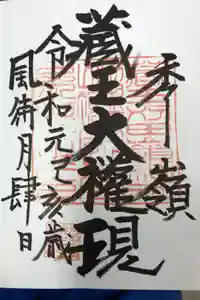 秀嶺
藏王大權現
令和元己亥歳
風待月肆日